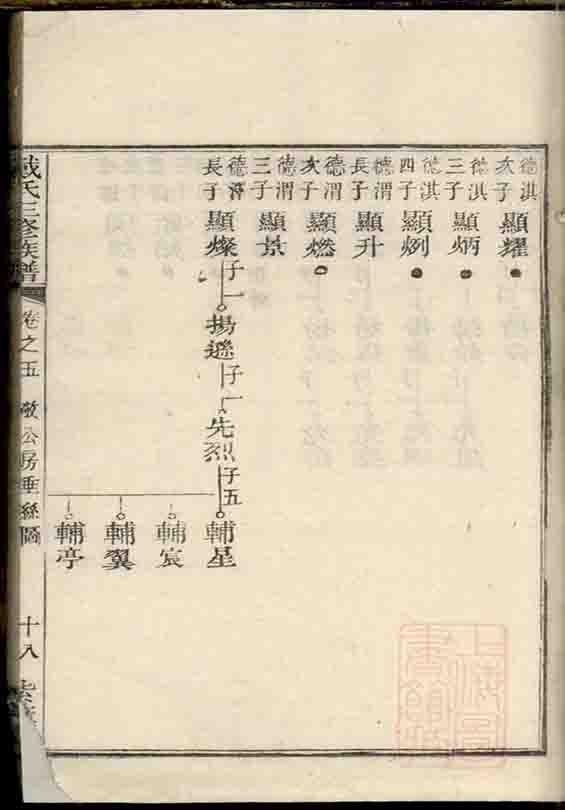 德淇次子 顯耀
德淇三子 顯炳
德淇四子 顯烈
德渭長子 顯升
德渭次子 顯燃
德渭三子 顯景
長子 顯燦 子一 揚遜 子一 先烈 子五 輔星
輔宸
輔翼
輔亭
戴氏三修族譜 卷之五 敬公房垂絲圖 十八
上海圖書館藏